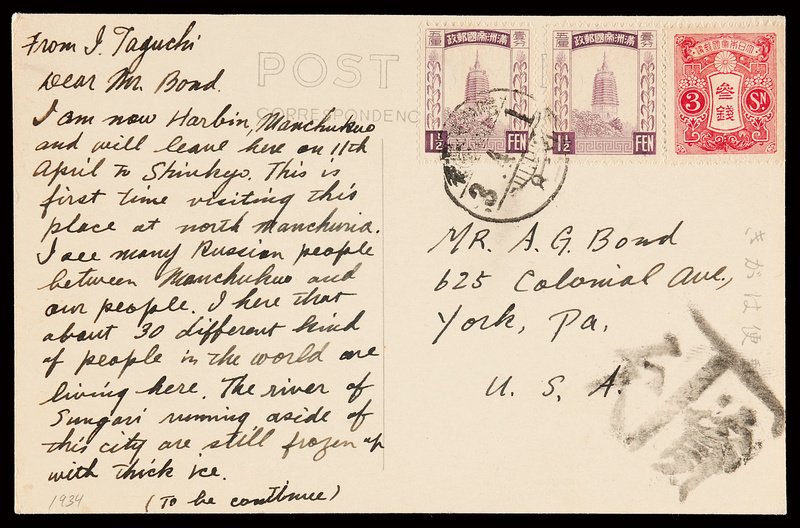 From I. Taguchi
Dear Mr. Bond.
I am now Harbin, Manchukuo
and will leave here on 11th
April to Shinkyo. This is
first time visiting this
place at north manchuria.
I see many Russian people
between Manchukuo and
our people. I here that
about 30 different kind
of people in the world are
living here. The river of
Sungari running aside of
this city are still frozen up
with thick ice.
(To be continue)
1934
POST
CORRESPONDENC
政郵國帝國洲滿
壹分
1½ FEN
政郵國帝國洲滿
壹分
1½ FEN
3 SN
参銭
MR. A. G. Bond
625 Colonial Ave.,
York, Pa.
U. S. A.
きがは便